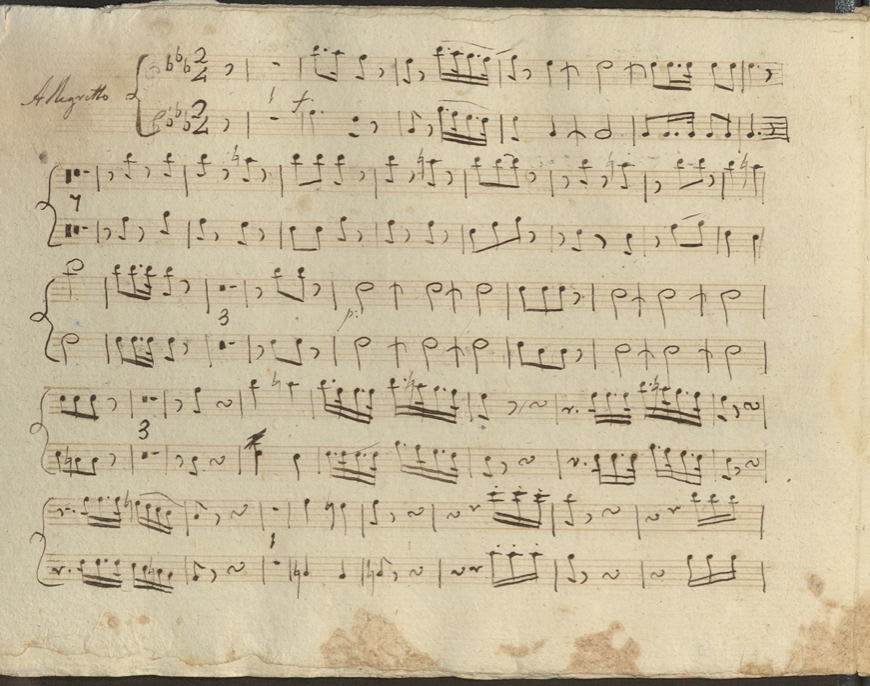 Allegretto
2 4
2 4
1
f.
7
3
p:
3
1